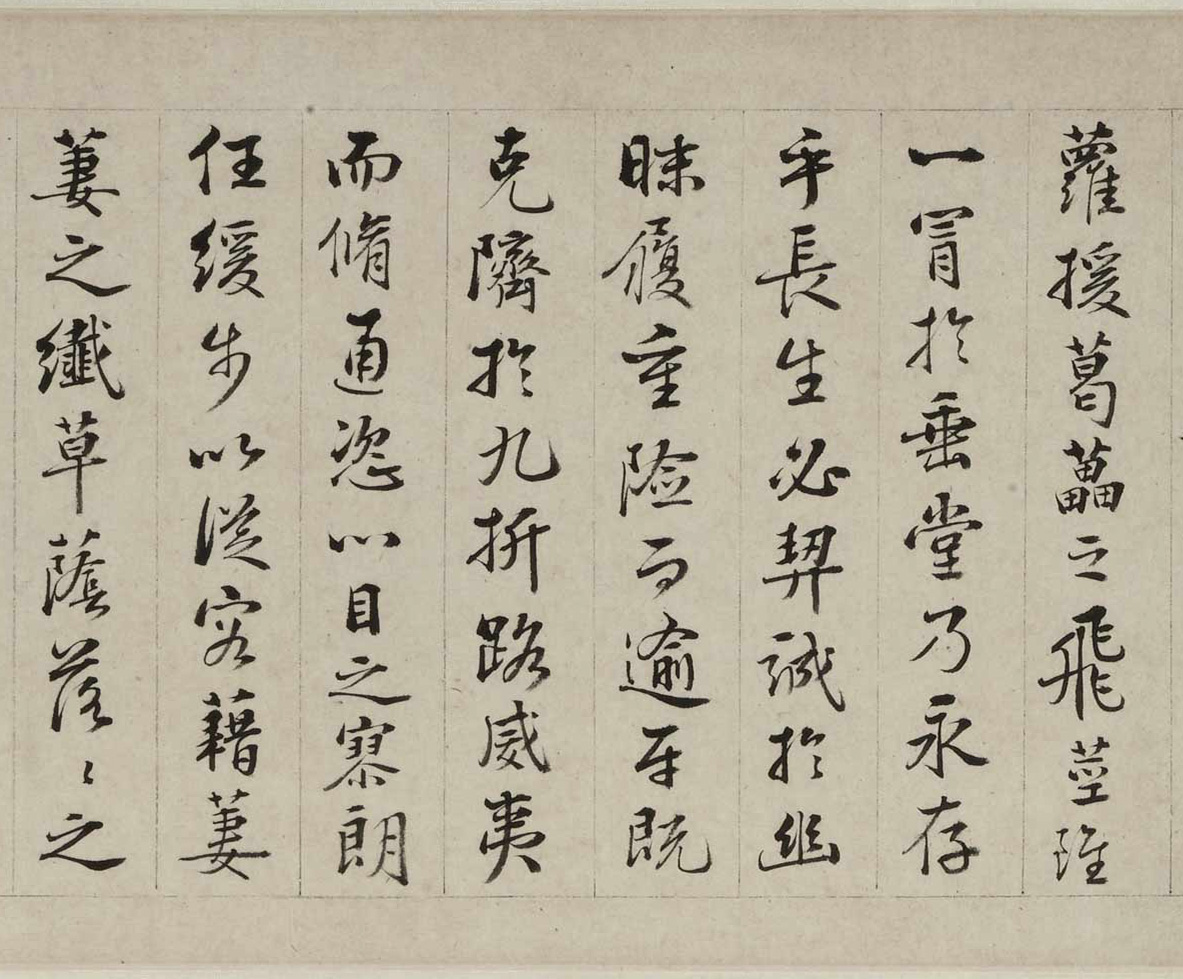 蘿援葛藟之飛莖雖
一冒於垂堂乃永存
乎長生必契誠於幽
昧履重險而逾平既
克隮於九折路威夷
而脩通恣心目之寥朗
任緩步以從容藉萋
萋之纖草蔭落〻之